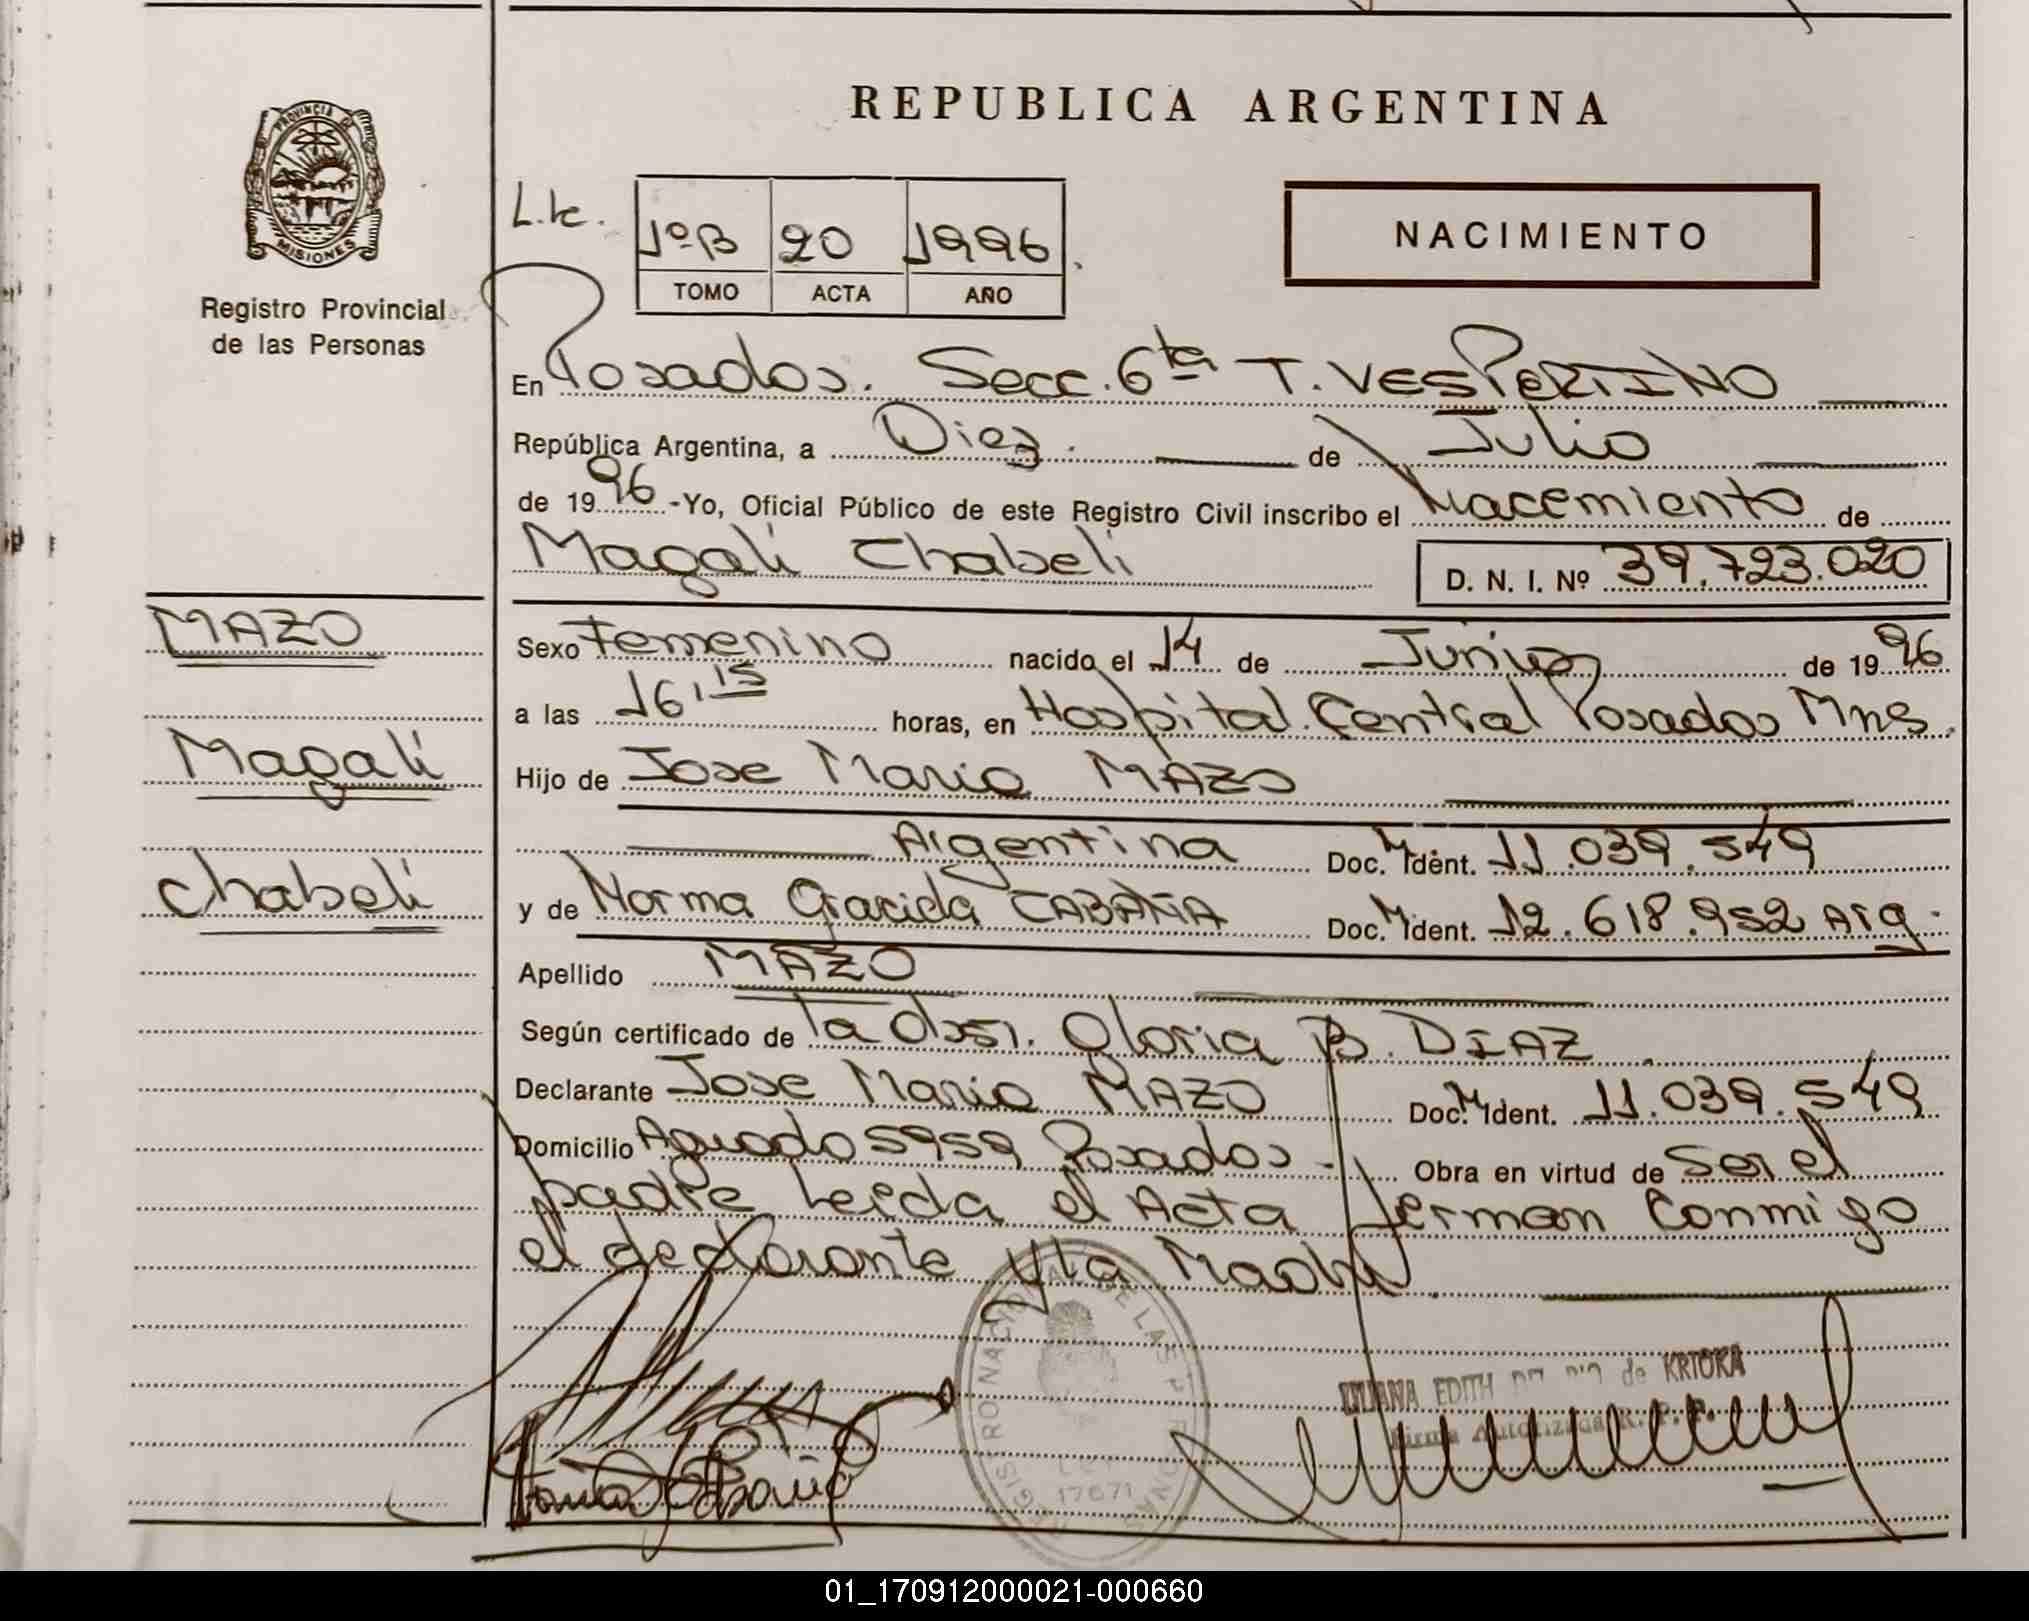 REPUBLICA ARGENTINA
PROVINCIA DE
MISIONES
Registro Provincial
de las Personas
L.tc.
1º B 20 1996
TOMO ACTA AÑO
NACIMIENTO
En Posadas. Secc. 6ta T. VESPERTINO
República Argentina, a Diez. de Julio
de 1996 - Yo, Oficial Público de este Registro Civil inscribo el Nacemiento de
Magali Chabeli D. N. I. Nº 39.723.020
MAZO
Magali
Chabeli
Sexo Femenino nacido el 14 de Junio de 1996
a las 16,15 horas, en Hospital Central Posadas Mns.
Hijo de Jose Maria MAZO
Argentina Doc. M Ident. 11.039.549
y de Norma Graciela CABAÑA Doc. M Ident. 12.618.952 Arg.
Apellido MAZO
Según certificado de la Obst. Gloria B. DIAZ
Declarante Jose Maria MAZO Doc. M Ident. 11.039.549
Domicilio Aguado 5959 Posadas - Obra en virtud de Ser el
padre Leida el Acta ferman Conmigo
el declarante y la Madre.
EDITH de KRIOKA
Firma Autorizada R. P. P.
17671
01_170912000021-000660